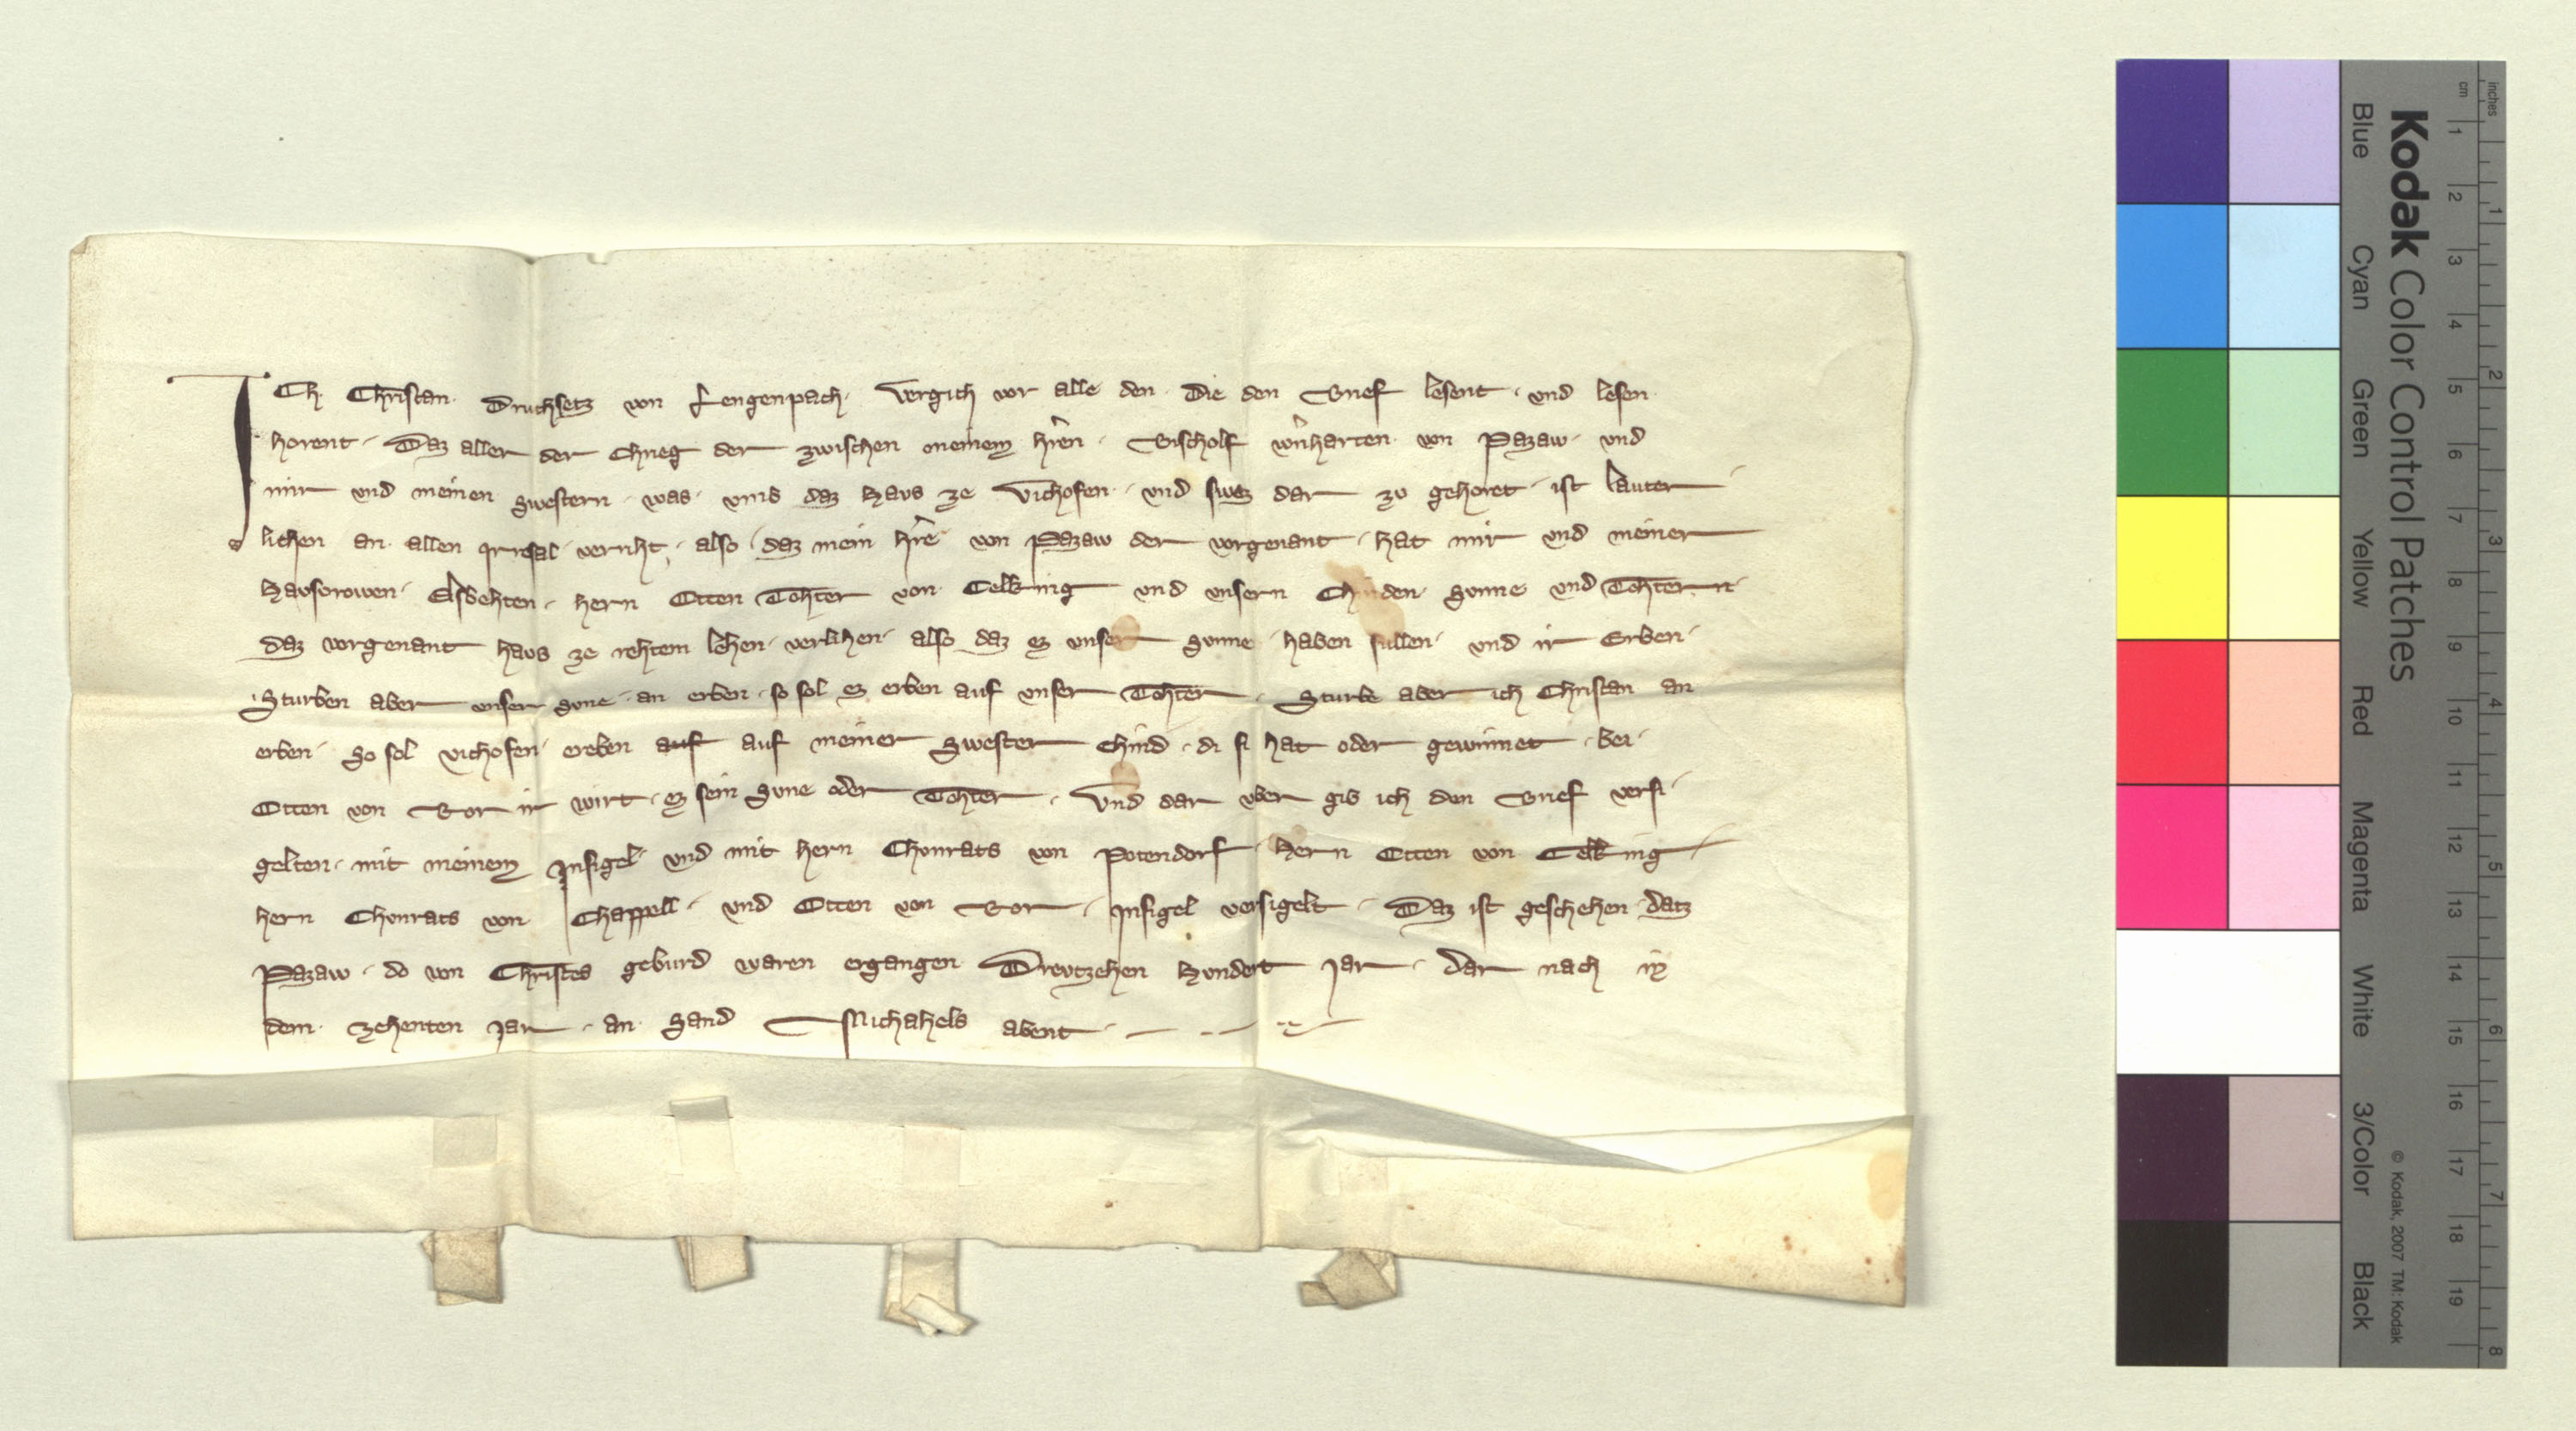 ICh Christan Druchsetz von Lengenpach vergich vor alle den die den Brief lesent und lesen
horent Daz aller der Chrieg der zwischen meinem hren Bischolf wernharten von Pazaw und
mir und meinen swestern was umb daz Haus ze Vichofen und swaz dar zu gehoret ist lauter
lichen an allen irresal verriht also daz mein hre von Pazaw der vorgenant hat mir und meiner
Hausvrowen Elsbehten hern Otten Tohter von Celking und unsern Chinden sunne und Tohtern
daz vorgenant haus ze rehtem lehen verlihen also daz ez unser sunne haben sullen und ir Erben
Sturben aber unser sune an erben so sol ez erben auf unser Tohter Sturbe aber ich Christan an
erben So sol vichofen ereben auf auf meiner swester chind di si hat oder gewinnet bei
Otten von Ror ir wirt ez sein sune oder Tohter Und dar uber gib ich den Brief versi
gelten mit meinem Insigel und mit hern Chunrats von Potendorf hern Otten von Celking
hern Chunrats von Chappell und Otten von Ror Insigel versigelt Daz ist geschehen datz
Pazaw do von Christes geburd waren ergangen Dreutzehen Hundert jar dar nach in
dem zehenten jar an sand Michahels abent
Kodak Color Control Patches
© Kodak, 2007 TM: Kodak
Blue Cyan Green Yellow Red Magenta White 3/Color Black
cm 1 2 3 4 5 6 7 8 9 10 11 12 13 14 15 16 17 18 19
inches 1 2 3 4 5 6 7 8